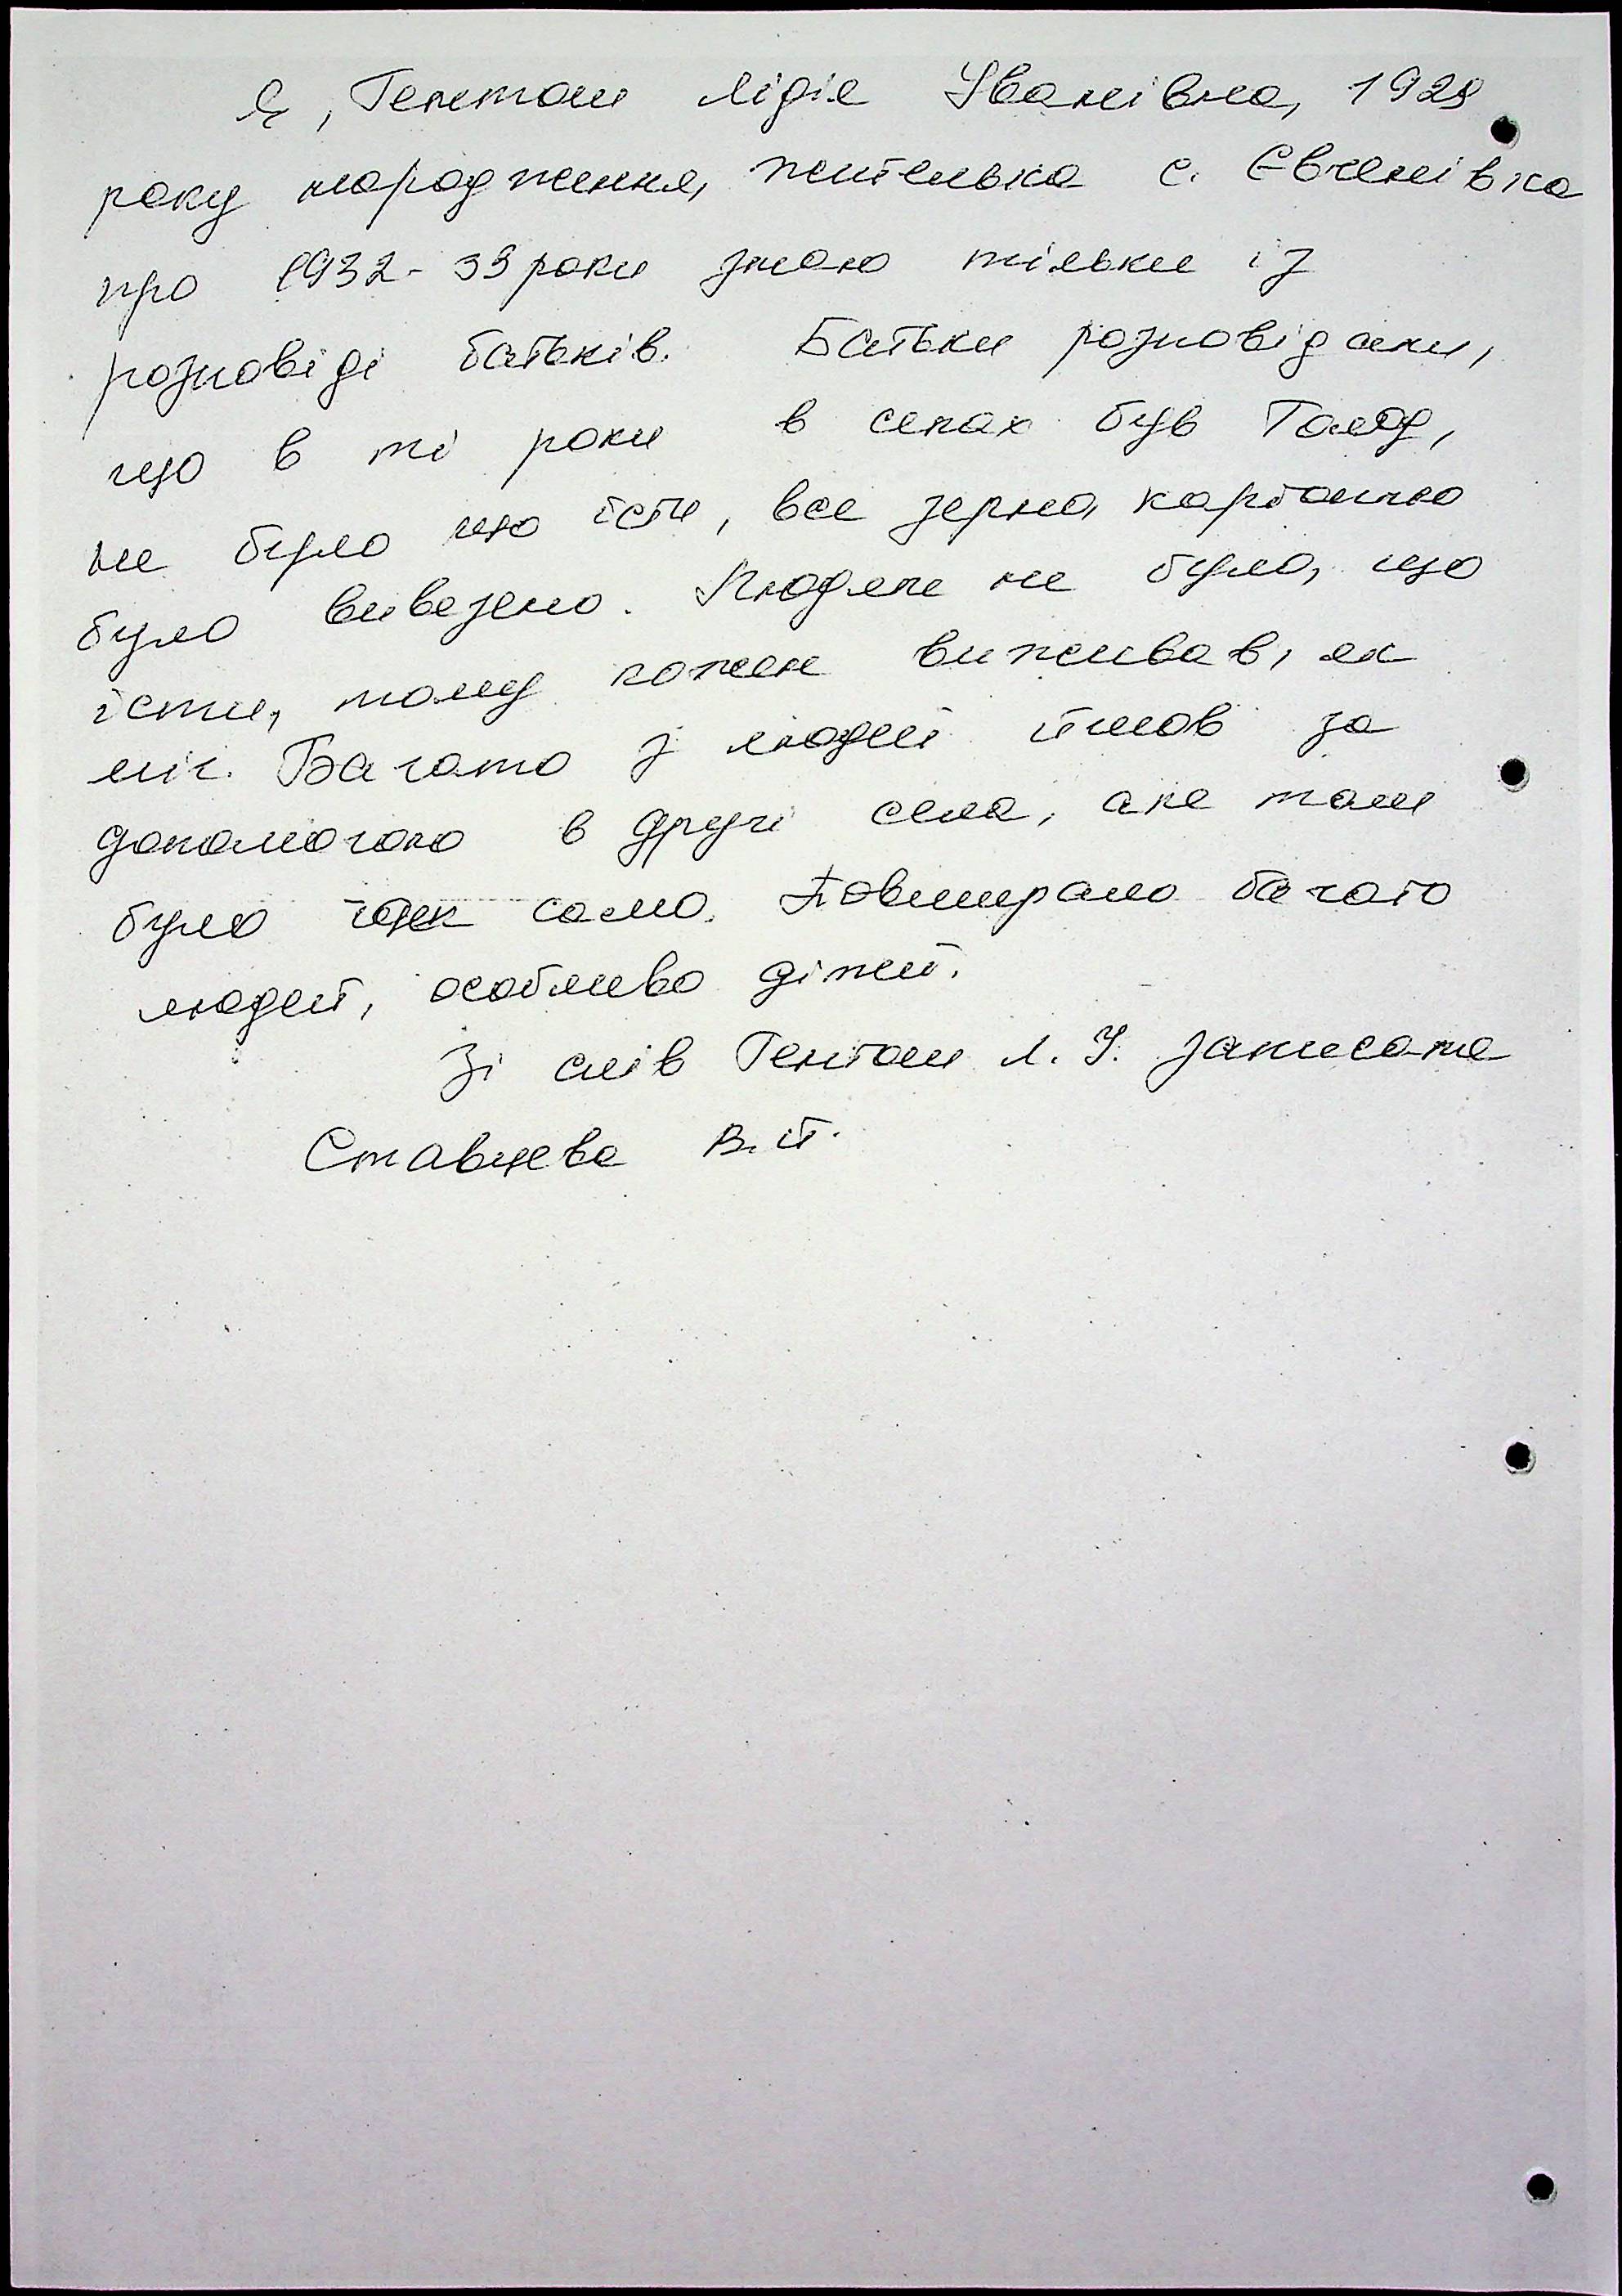 Я, Гептом Лідія Іванівна, 1928
року народження, жителька с. Євгенівка
про 1932-33 роки знаю тільки із
розповіді батьків. Батьки розповідали,
що в ті роки в селах був голод,
не було що їсти, все зерно, картоплю
було вивезено. Людям не було, що
їсти, тому кожен виживав, як
міг. Багато з людей йшов за
допомогою в другі села, але там
було так само. Повимирало багато
людей, особливо дітей.
Зі слів Л. І. записала
Ставцева В.Й.